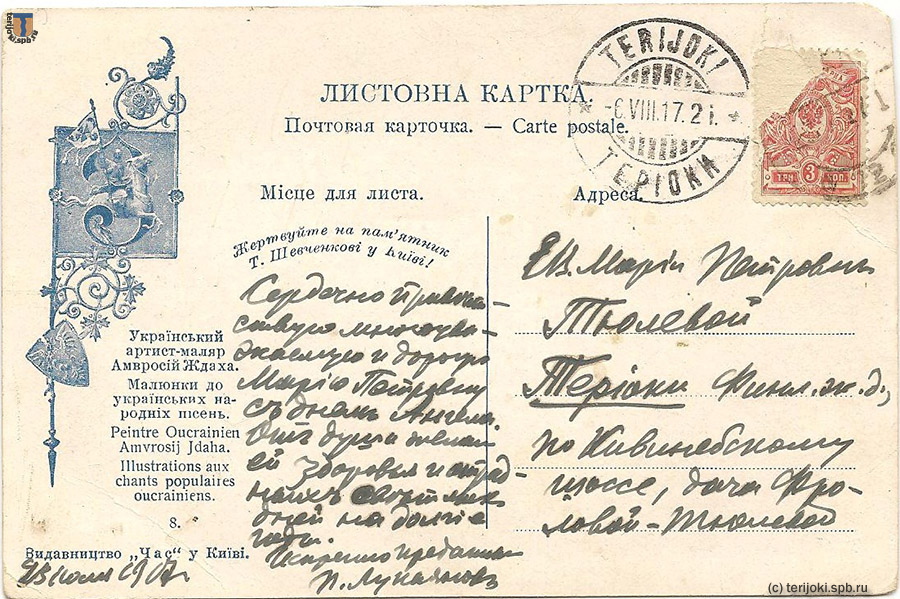 terijoki.spb.ru
ЛИСТОВНА КАРТКА.
Почтовая карточка. — Carte postale.
TERIJOKI
-6.VIII.17.2 i.
ТЕРІОКИ
ТРИ 3 КОП.
Місце для листа.
Адреса.
Жертвуйте на пам'ятник
Т. Шевченкові у Київі!
Український
артист-маляр
Амвросій Ждаха.
Малюнки до
українських на-
родніх пісень.
Peintre Oucrainien
Amvrosij Jdaha.
Illustrations aux
chants populaires
oucrainiens.
8.
Видавництво „Час" у Київі.
Сердечно привѣт-
ствую многоува-
жаемую и дорогую
Марію Петровну
съ днемъ Ангела.
Отъ души желаю
ей здоровья и отрад-
ныхъ
дней на долгіе
годы.
Искренно преданный
П. Лукьяновъ
июля 1917 г.
Е.В. Маріи Петровнѣ
Тюлевой
Теріоки Финл. ж. д.,
по Кивинебскому
шоссе, дача Фро-
ловой-Тюлевой
(c) terijoki.spb.ru